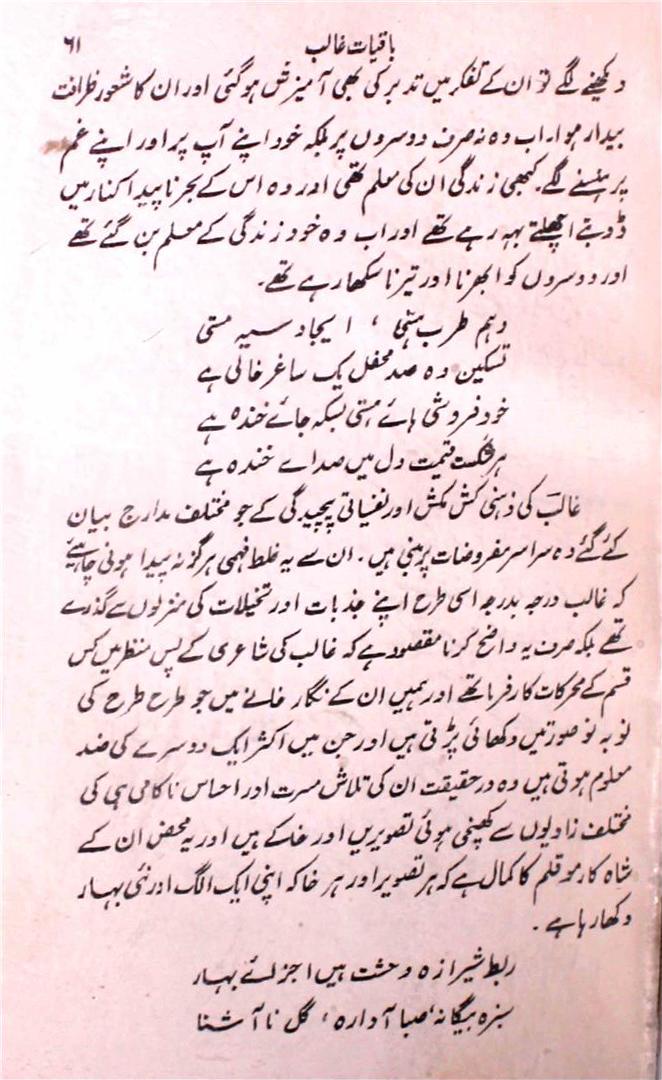 باقیات غالب ۶۱
دیکھنے لگے تو ان کے تفکر میں تدبر کی بھی آمیزش ہو گئی اور ان کا شعور ظرافت
بیدار ہوا، اب وہ نہ صرف دوسروں پر بلکہ خود اپنے آپ پر اور اپنے غم
پر ہنسنے لگے۔ کبھی زندگی ان کی معلم تھی اور وہ اس کے بحر ناپیدا کنار میں
ڈوبتے اچھلتے بہہ رہے تھے اور اب وہ خود زندگی کے معلم بن گئے تھے
اور دوسروں کو ابھرنا اور تیرنا سکھا رہے تھے۔
وہم طرب ہستی، ایجاد سیہ مستی
تسکین دہ صد محفل یک ساغر خالی ہے
خود فروشی ہائے ہستی بسکہ جائے خندہ ہے
ہر شکست قیمت دل میں صدائے خندہ ہے
غالبؔ کی ذہنی کش مکش اور نفسیاتی پیچیدگی کے جو مختلف مدارج بیان
کئے گئے وہ سراسر مفروضات پر مبنی ہیں۔ ان سے یہ غلط فہمی ہرگز نہ پیدا ہونی چاہیئے
کہ غالب درجہ بدرجہ اسی طرح اپنے جذبات اور تخیلات کی منزلوں سے گذرے
تھے بلکہ صرف یہ واضح کرنا مقصود ہے کہ غالب کی شاعری کے پس منظر میں کس
قسم کے محرکات کارفرما تھے اور ہمیں ان کے نگار خانے میں جو طرح طرح کی
نو بہ نو صورتیں دکھائی پڑتی ہیں اور جن میں اکثر ایک دوسرے کی ضد
معلوم ہوتی ہیں وہ درحقیقت ان کی تلاش مسرت اور احساس ناکامی ہی کی
مختلف زاویوں سے کھینچی ہوئی تصویریں اور خاکے ہیں اور یہ محض ان کے
شاہ کار موقلم کا کمال ہے کہ ہر تصویر اور ہر خاکہ اپنی ایک الگ اور نئی بہار
دکھا رہا ہے۔
ربط شیرازہ وحشت ہیں اجزائے بہار
سبزہ بیگانہ، صبا آوارہ، گل نا آشنا